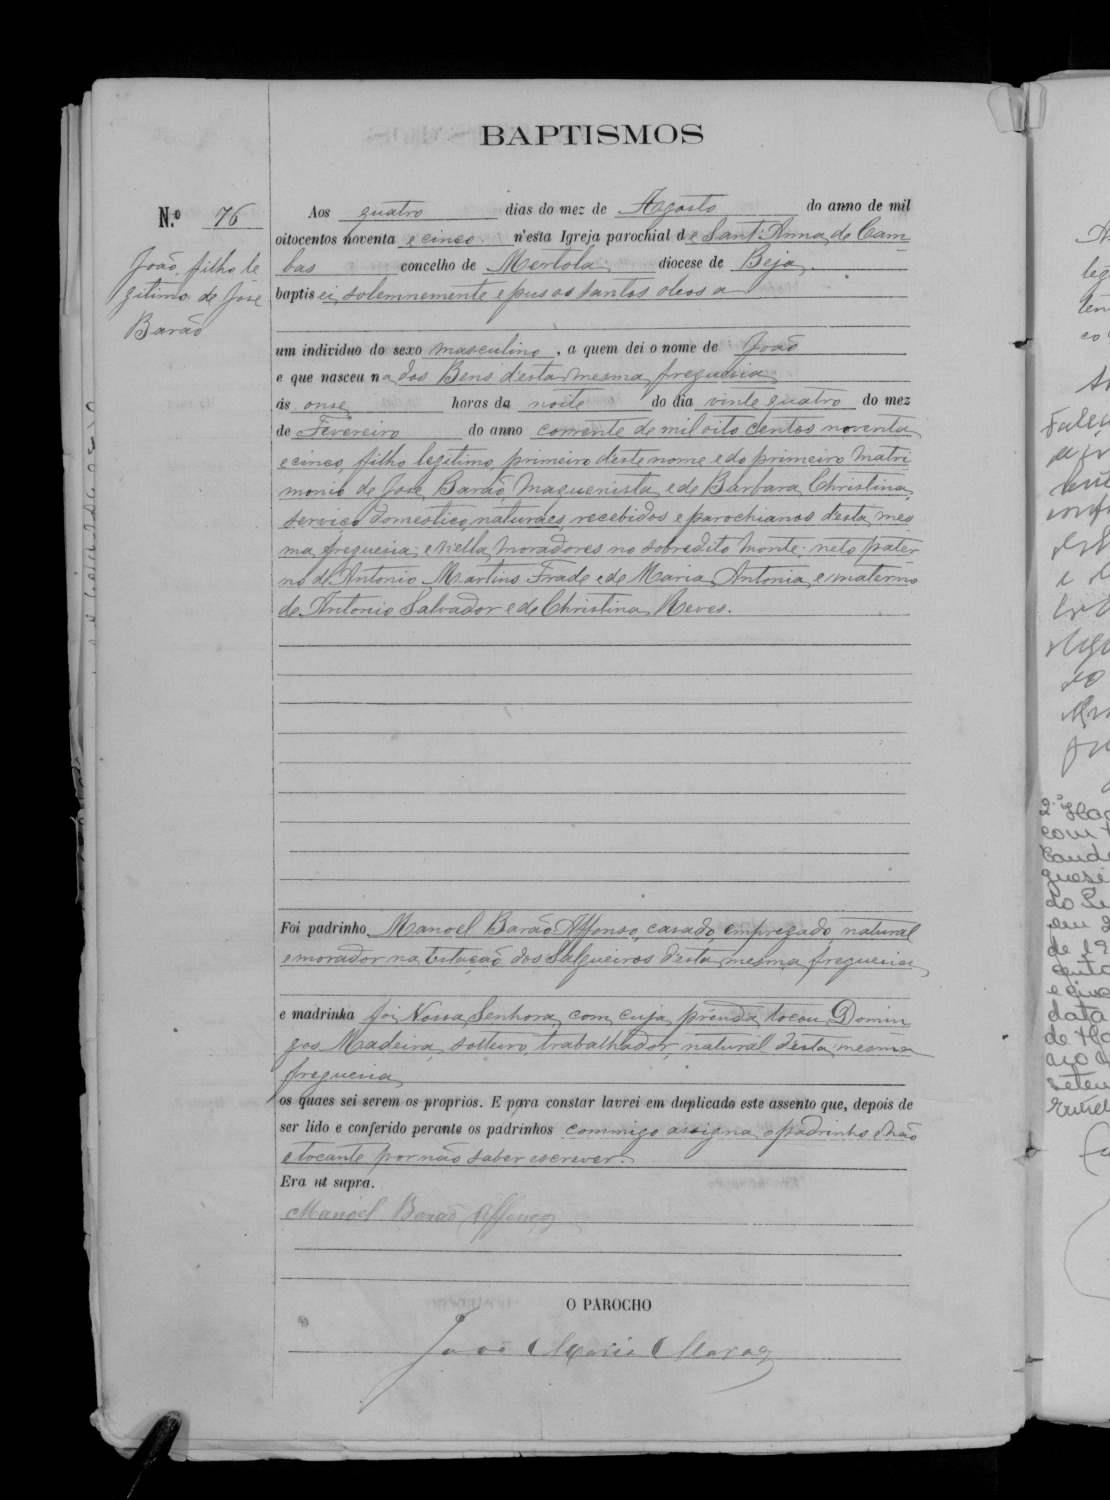 BAPTISMOS
N.º 76
João, filho le
gitimo de José
Barão
Aos quatro dias do mez de Agosto do anno de mil
oitocentos noventa e cinco n'esta Igreja parochial de Sant'Anna de Cam
bas concelho de Mertola diocese de Beja
baptisei solemnemente e pus os santos oleos a
um individuo do sexo masculino, a quem dei o nome de João
e que nasceu na dos Bens d'esta mesma freguesia
ás onse horas da noite do dia vinte quatro do mez
de Fevereiro do anno corrente de mil oito centos noventa
e cinco, filho legitimo, primeiro deste nome e do primeiro matri
monio de José Barão, maquenista e de Barbara Christina,
serviço domestico, naturaes, recebidos e parochianos desta mes
ma freguesia, e n'ella moradores no sobredito monte; neto pater
no de Antonio Martins Frade e de Maria Antonia, e materno
de Antonio Salvador e de Christina Neves.
Foi padrinho, Manoel Barão Affonso, casado, empregado, natural
e morador na Estação dos Salgueiros d'esta mesma freguesia
e madrinha foi Nossa Senhora, com cuja prenda tocou Domin
gos Madeira, solteiro, trabalhador, natural desta mesma
freguesia,
os quaes sei serem os proprios. E para constar lavrei em duplicado este assento que, depois de
ser lido e conferido perante os padrinhos commigo assigna o padrinho e não
o tocante por não saber escrever.
Era ut supra.
Manoel Barão Affonço
O PAROCHO
José Maria
2.º
com
quasi
em 2
de 19
e cinco
data